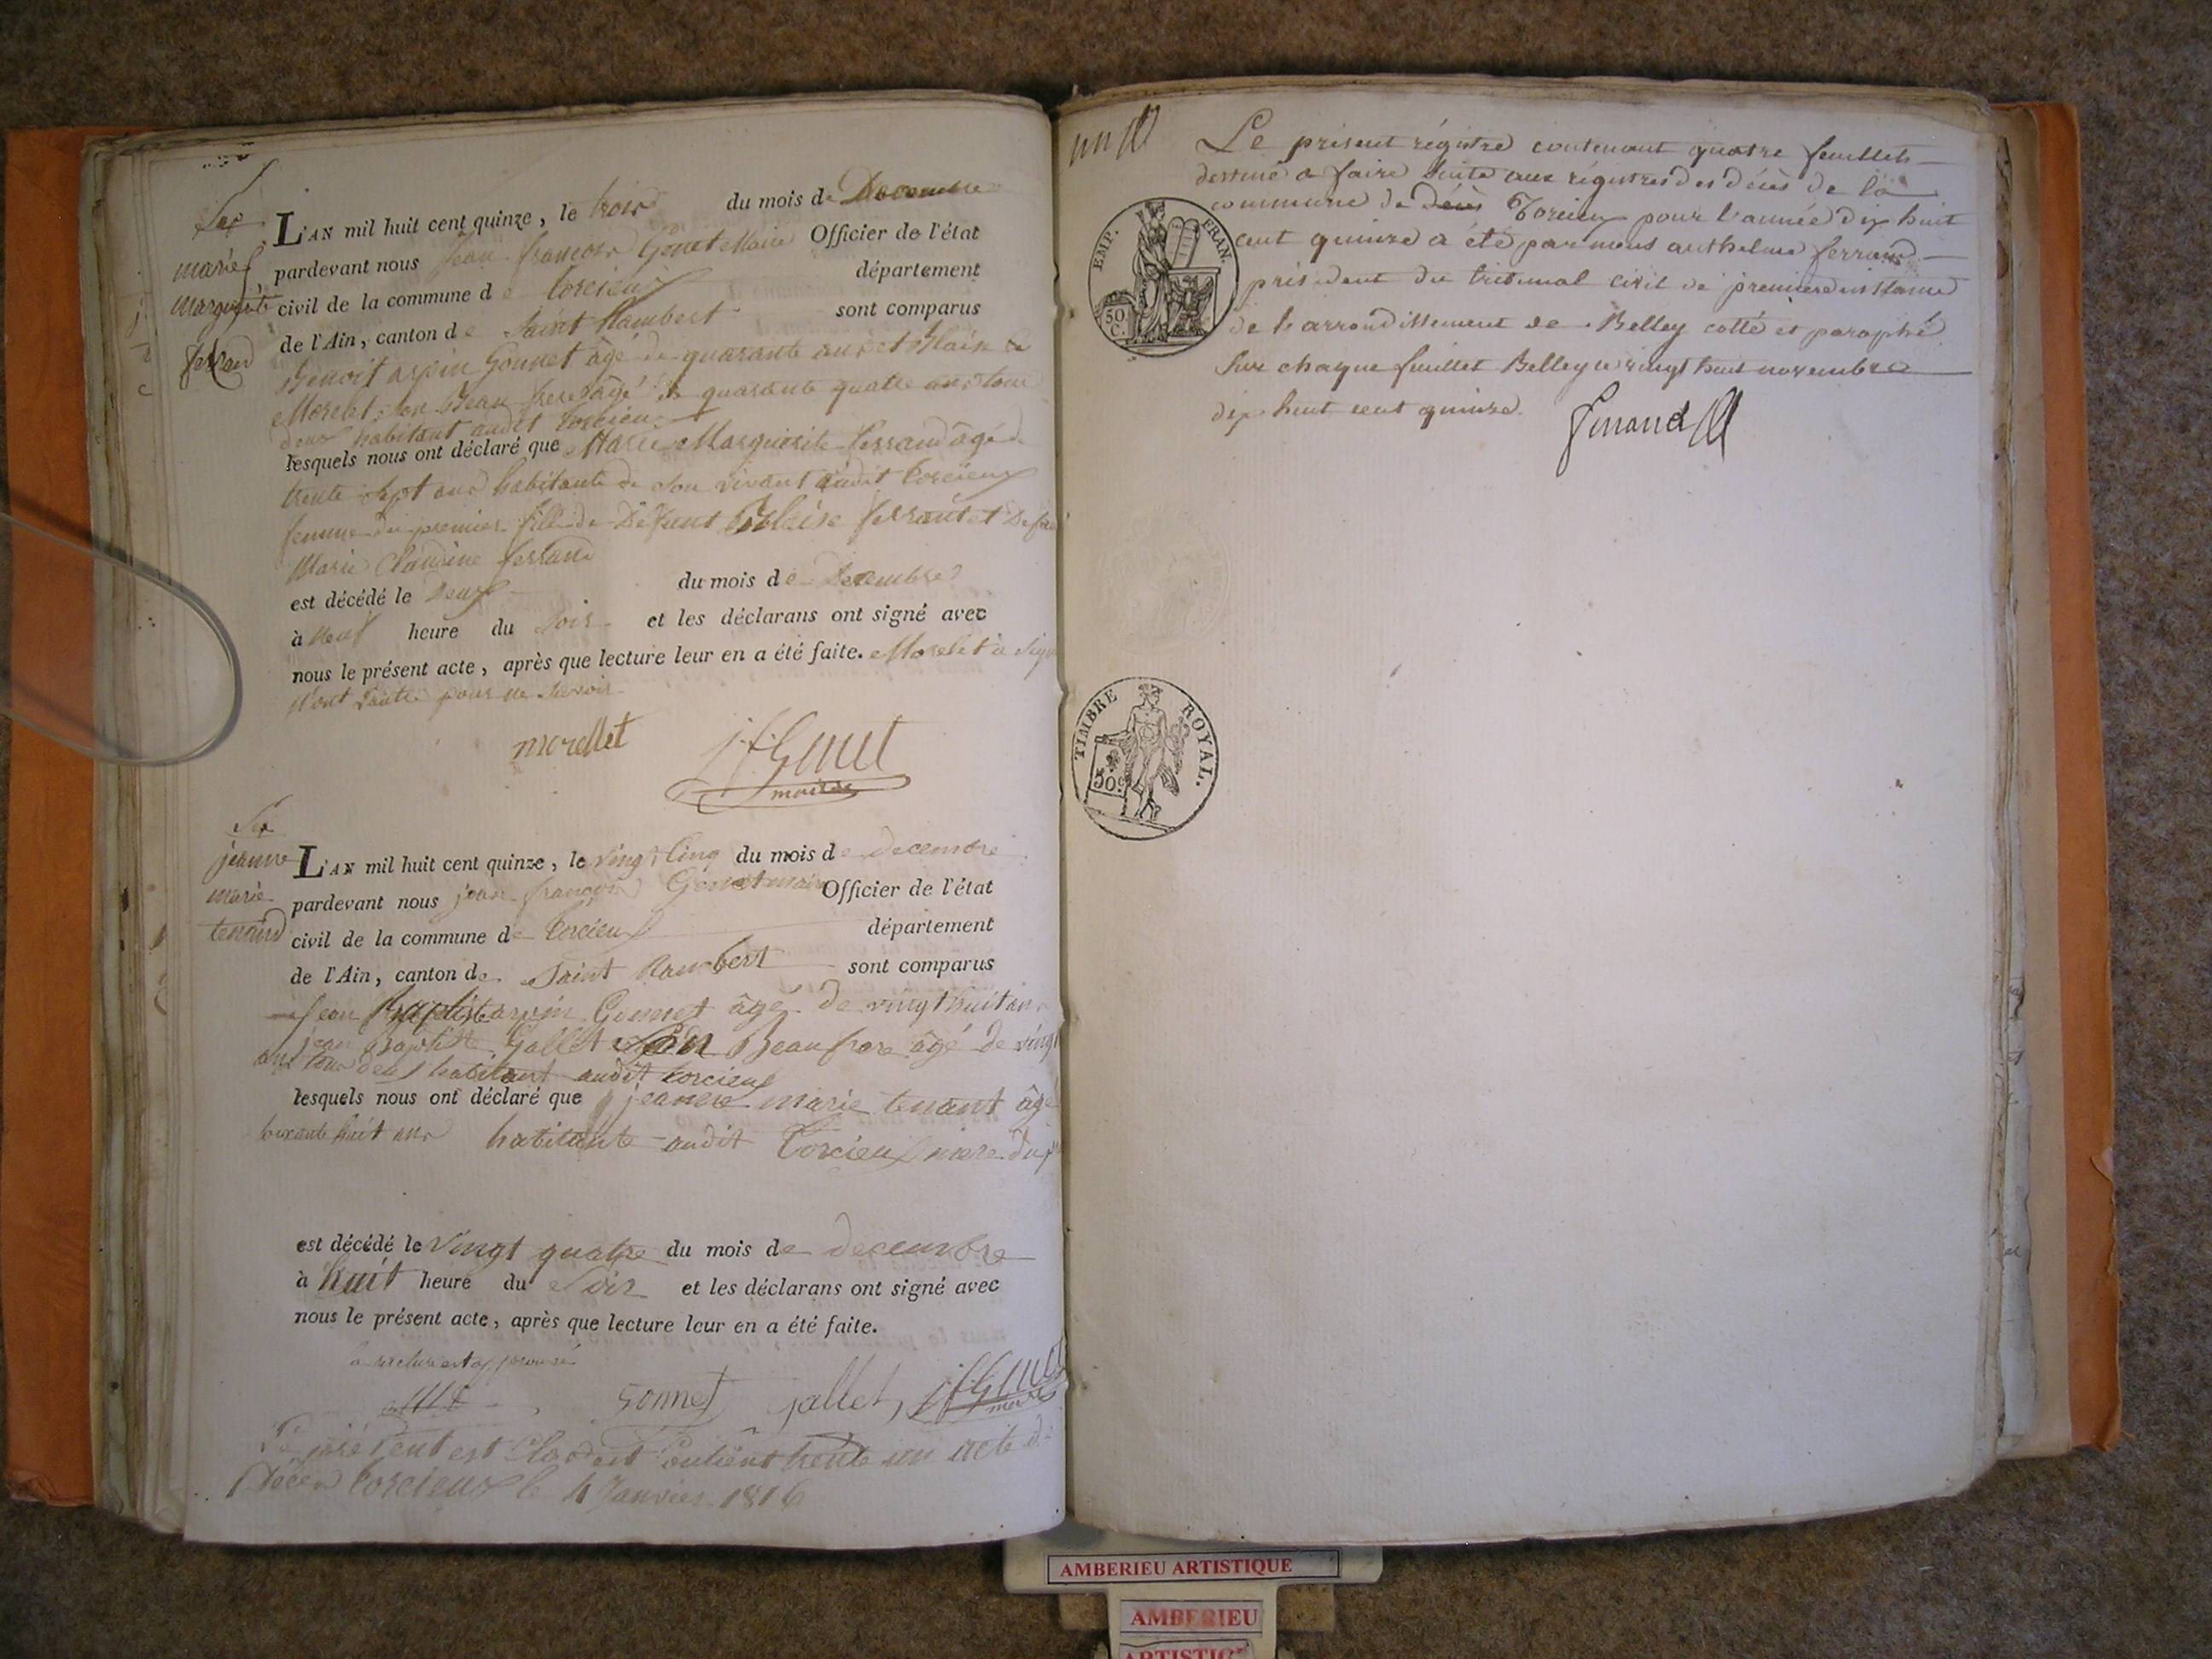 marie
marguerite
ferrand
L'AN mil huit cent quinze, le trois du mois de Decembre
pardevant nous Jean françois Genet Maire Officier de l'état
civil de la commune de Torcieu département
de l'Ain, canton de Saint Rambert sont comparus
Benoit arpin Gonnet âgé de quarante ans et Blaise
Morelet son Beau frere âgé de quarante quatre ans tous
deux habitant audit torcieu
lesquels nous ont déclaré que Marie Marguerite ferrand âgé de
trente sept ans habitante de son vivant audit torcieux
femme du premier fille de Défunt Blaise ferrant et
Marie Claudine ferrand
est décédé le Deux du mois de Decembre
à neuf heure du soir et les déclarans ont signé avec
nous le présent acte, après que lecture leur en a été faite. Morelet à signé
Non l'autre pour ne savoir
morellet
j f Genet
maire
jeanne
marie
tenand
L'AN mil huit cent quinze, le vingt cinq du mois de decembre
pardevant nous jean françois Genet maire Officier de l'état
civil de la commune de torcieux département
de l'Ain, canton de Saint Rambert sont comparus
Jean Baptiste arpin Gonnet âgé de vingt huit ans
jean Baptiste Gallet son Beau frere âgé de vingt
ans tous deux habitant audit torcieux
lesquels nous ont déclaré que jeanne marie tenant âgé
soixante huit ans habitante audit Torcieu mere du
est décédé le vingt quatre du mois de decembre
à huit heure du soir et les déclarans ont signé avec
nous le présent acte, après que lecture leur en a été faite.
la rature est approuvé
Gonnet jallet j f Genet
maire
Le présent est Clos et Contient trente un acte de
Décès torcieux le 4 Janvier 1816
un
Le présent régistre contenant quatre feuillets
destiné a faire suite aux régistres des décès de la
commune de Torcieu pour l'année dix huit
cent quinze a été par nous anthelme ferrand
président du tribunal civil de premiere instance
de l'arrondissement de Belley cotté et paraphé
sur chaque feuillet Belley le vingt huit novembre
dix huit cent quinze.
ferrand
EMP. FRAN.
50
C.
TIMBRE ROYAL.
50c
AMBERIEU ARTISTIQUE
AMBERIEU
ARTISTIC